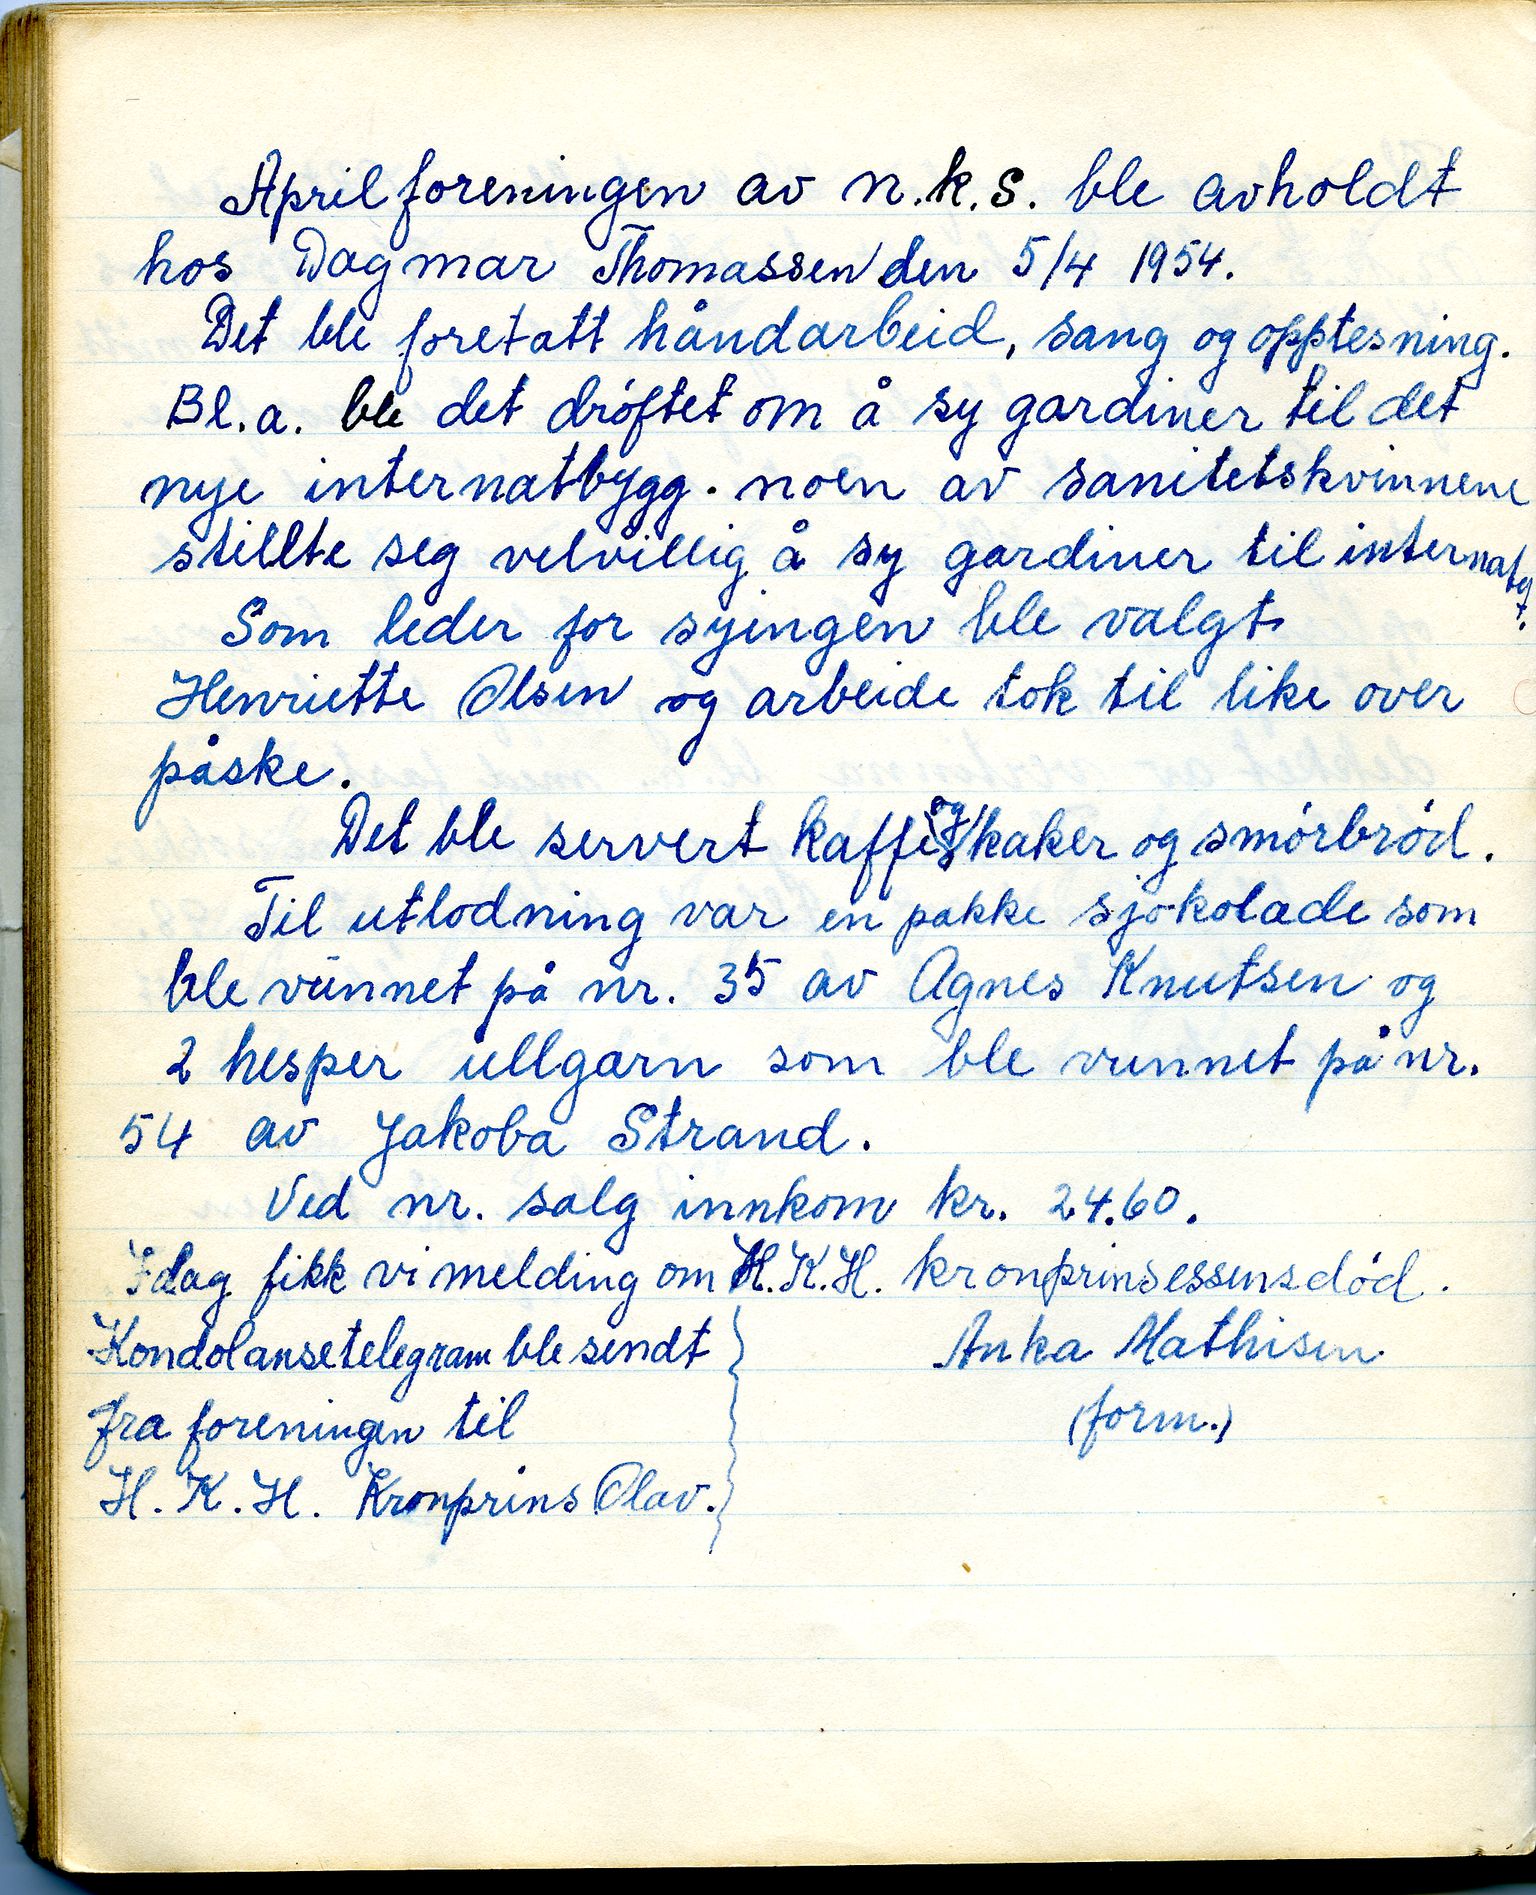 Aprilforeningen av n.k.s. ble avholdt
hos Dagmar Thomassen den 5/4 1954.
Det ble foretatt håndarbeid, sang og opptesning.
Bl.a. ble det drøftet om å sy gardiner til det
nye internatbygg. noen av sanitetskvinnene
stillte seg velvillig å sy gardiner til internatet.
Som leder for syingen ble valgt
Henriette Olsen og arbeide tok til like over
påske.
Det ble servert kaffe og kaker og smørbrød.
Til utlodning var en pakke sjokolade som
ble vunnet på nr. 35 av Agnes Knutsen og
2 hesper ullgarn som ble vunnet på nr.
54 av Jakoba Strand.
Ved nr. salg innkom kr. 24.60.
Idag fikk vi melding om H.K.H. kronprinsessens død.
Kondolansetelegram ble sendt
fra foreningen til
H.K.H. Kronprins Olav.
Anka Mathisen
(form.)